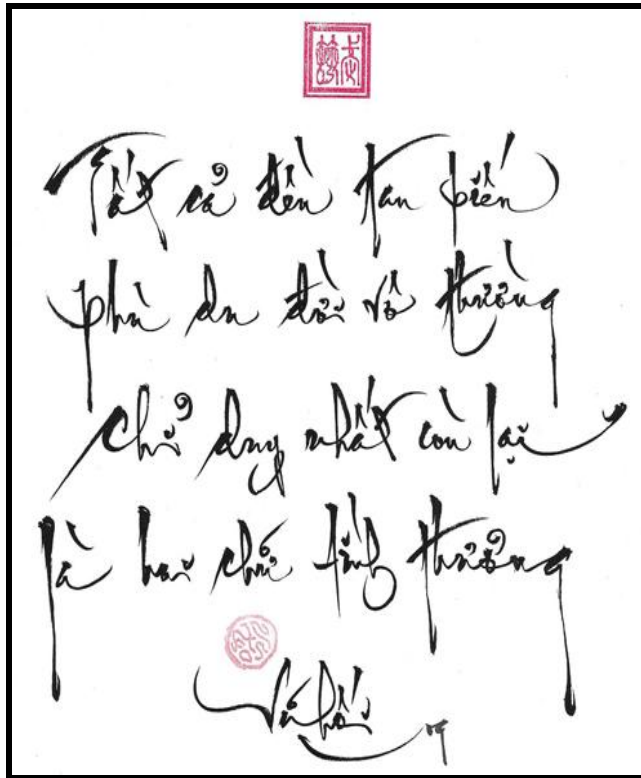 Tất cả đều tan biến
phù du đời vô thường
chỉ duy nhất còn lại
là hai chữ tình thương
Vũ Hối